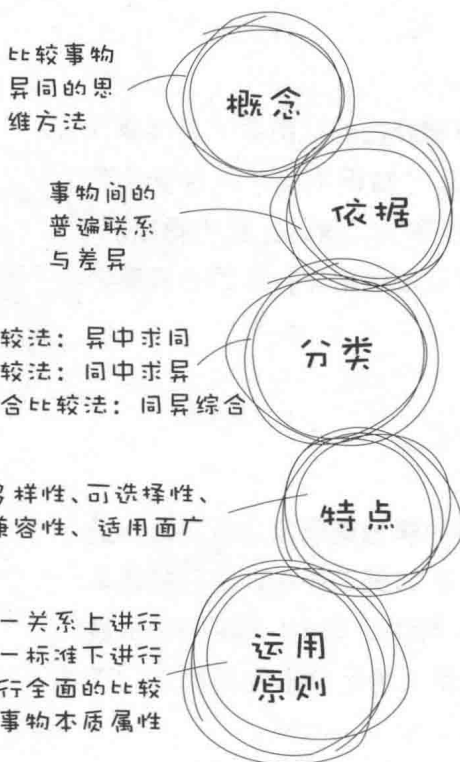 比较事物
异同的思
维方法
概念
事物间的
普遍联系
与差异
依据
较法：异中求同
较法：同中求异
合比较法：同异综合
分类
样性、可选择性、
兼容性、适用面广
特点
一关系上进行
一标准下进行
行全面的比较
事物本质属性
运用
原则